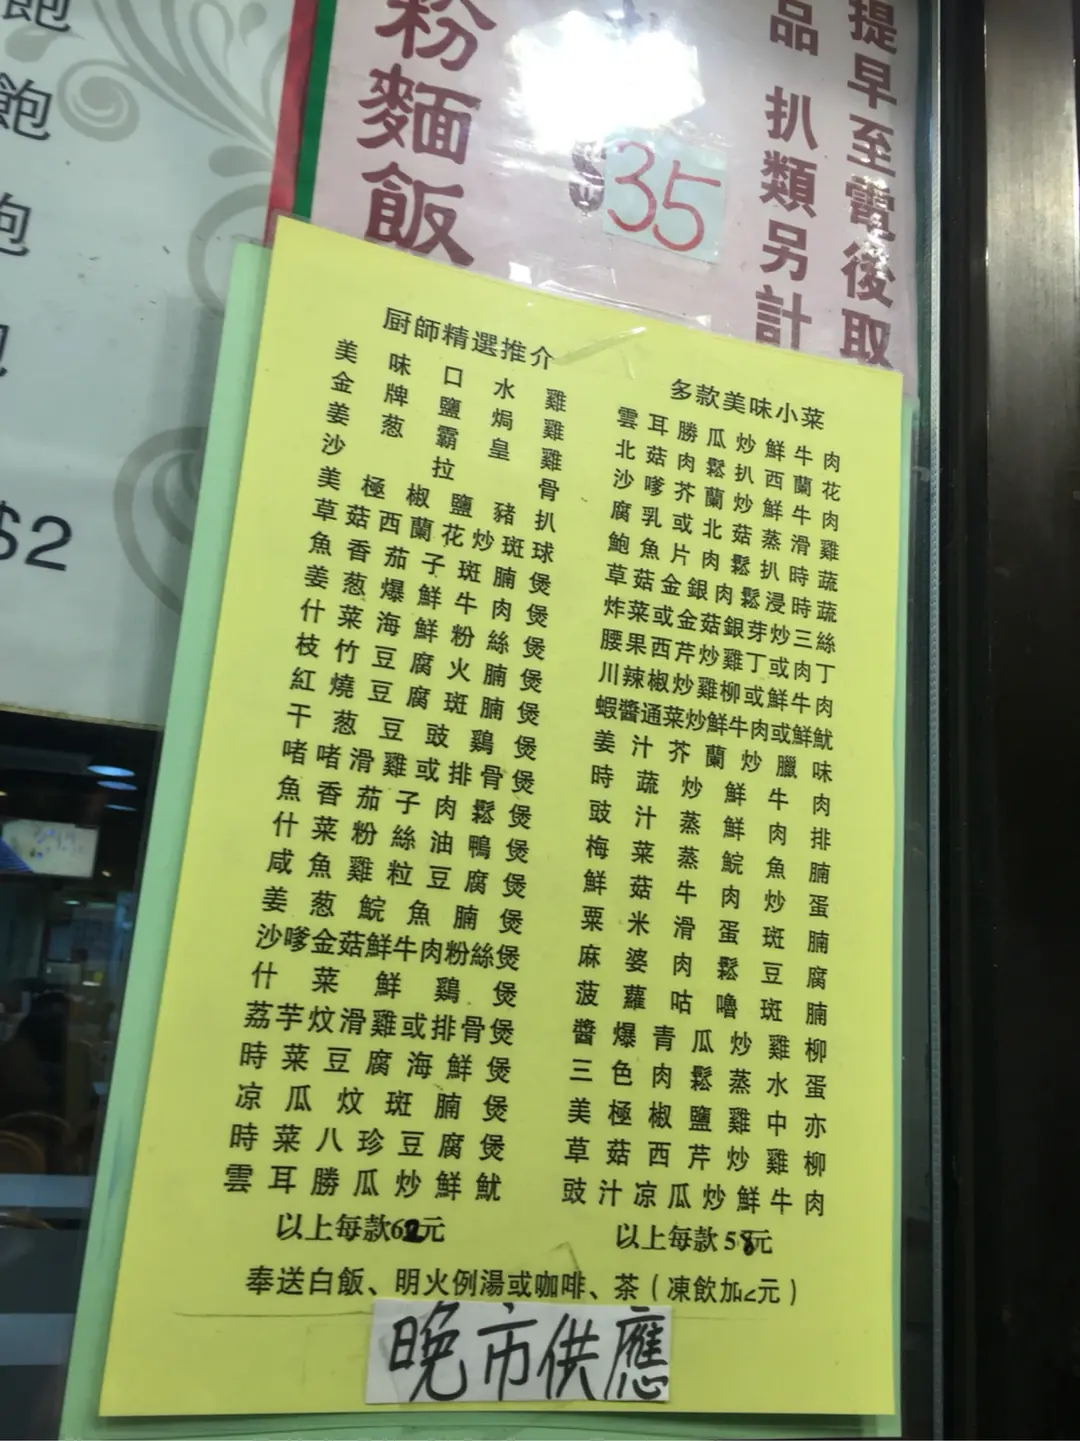 飽
飽
飽
$2
粉麵飯
$35
品 扒類另計
提早至電後取
厨師精選推介
美味口水雞
金牌鹽焗雞
姜葱霸皇雞
沙拉骨
美極椒鹽豬扒
草菇西蘭花炒斑球
魚香茄子斑腩煲
姜葱爆鮮牛肉煲
什菜海鮮粉絲煲
枝竹豆腐火腩煲
紅燒豆腐斑腩煲
干葱豆豉鷄煲
啫啫滑雞或排骨煲
魚香茄子肉鬆煲
什菜粉絲油鴨煲
咸魚雞粒豆腐煲
姜葱鯇魚腩煲
沙嗲金菇鮮牛肉粉絲煲
什菜鮮鷄煲
荔芋炆滑雞或排骨煲
時菜豆腐海鮮煲
凉瓜炆斑腩煲
時菜八珍豆腐煲
雲耳勝瓜炒鮮魷
以上每款62元
多款美味小菜
雲耳勝瓜炒鮮牛肉
北菇肉鬆扒西蘭花
沙嗲芥蘭炒鮮牛肉
腐乳或北菇蒸滑雞
鮑魚片肉鬆扒時蔬
草菇金銀肉鬆浸時蔬
炸菜或金菇銀芽炒三絲
腰果西芹炒雞丁或肉丁
川辣椒炒雞柳或鮮牛肉
蝦醬通菜炒鮮牛肉或鮮魷
姜汁芥蘭炒臘味
時蔬炒鮮牛肉
豉汁蒸鮮肉排
梅菜蒸鯇魚腩
鮮菇牛肉炒蛋
粟米滑蛋斑腩
麻婆肉鬆豆腐
菠蘿咕嚕斑腩
醬爆青瓜炒雞柳
三色肉鬆蒸水蛋
美極椒鹽雞中亦
草菇西芹炒雞柳
豉汁凉瓜炒鮮牛肉
以上每款58元
奉送白飯、明火例湯或咖啡、茶（凍飲加2元）
晚市供應